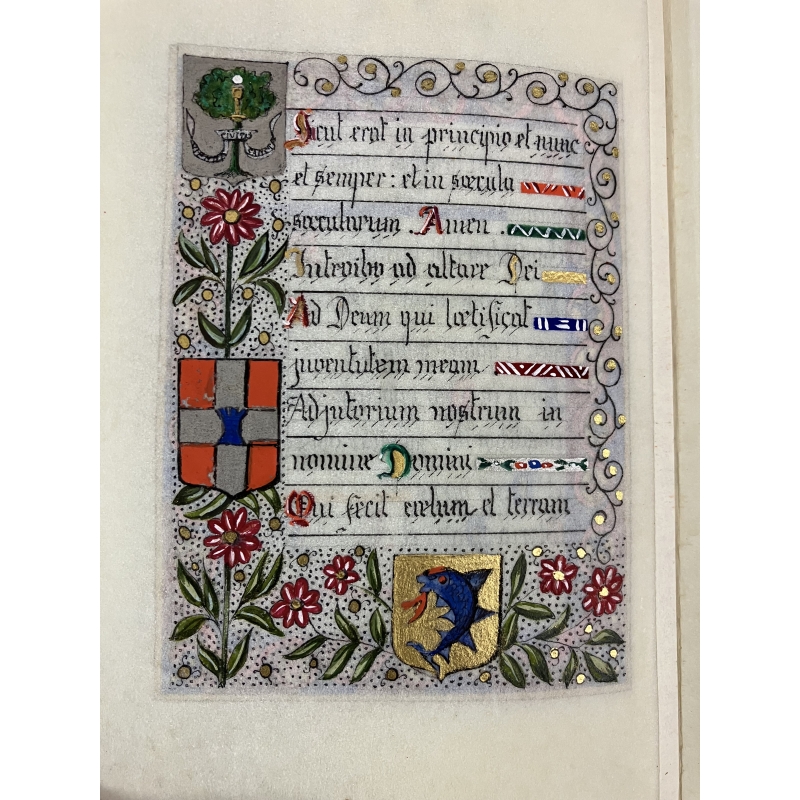 CIVITAS
Sicut erat in principio et nunc
et semper: et in sæcula
sæculorum. Amen.
Introibo ad altare Dei
Ad Deum qui lœtificat
juventutem meam
Adjutorium nostrum in
nomine Domini
Qui fecit cœlum et terram